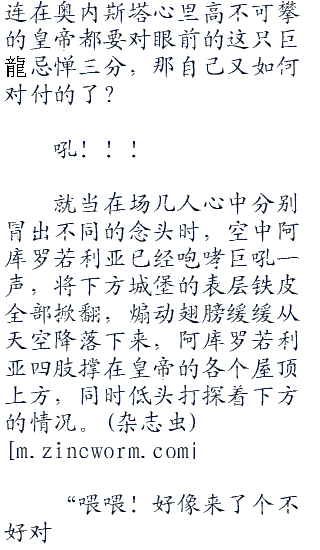 连在奥内斯塔心里高不可攀
的皇帝都要对眼前的这只巨
龍忌惮三分，那自己又如何
对付的了？
吼！！！
就当在场几人心中分别
冒出不同的念头时，空中阿
库罗若利亚已经咆哮巨吼一
声，将下方城堡的表层铁皮
全部掀翻，煽动翅膀缓缓从
天空降落下来，阿库罗若利
亚四肢撑在皇帝的各个屋顶
上方，同时低头打探着下方
的情况。(杂志虫)
[m.zincworm.com]
“喂喂！好像来了个不
好对